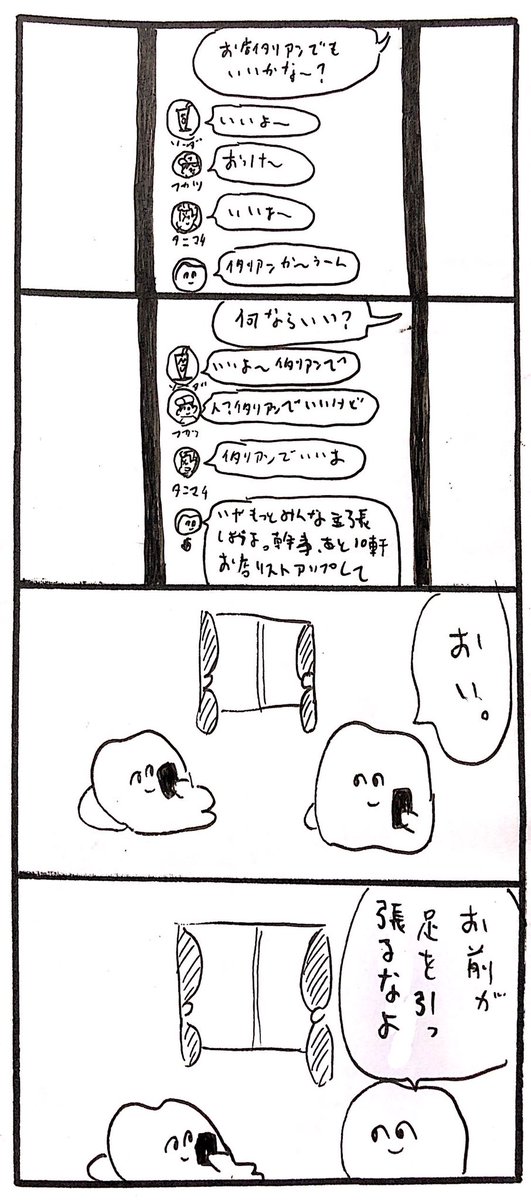 お店イタリアンでも
いいかな〜?
いいよ〜
ソーダ
おっけ〜
フカツ
いいよ〜
タニマチ
イタリアンか〜うーん
何ならいい?
いいよ〜イタリアンで
ソーダ
え?イタリアンでいいけど
フカツ
イタリアンでいいよ
タニマチ
いやもっとみんな主張
しようよっ幹事、あと10軒
お店リストアップして
おい。
お前が
足を引っ
張るなよ